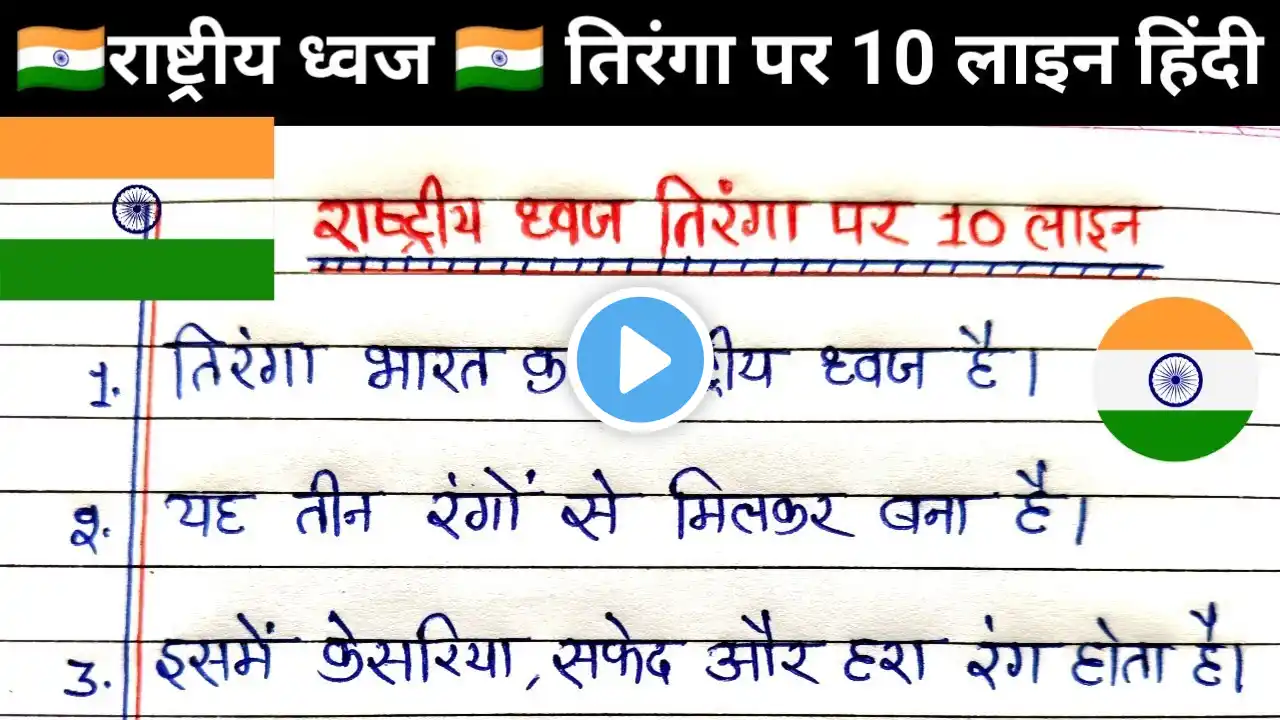 🇮🇳राष्ट्रीय ध्वज 🇮🇳 तिरंगा पर 10 लाइन हिंदी
राष्ट्रीय ध्वज तिरंगा पर 10 लाइन
1. तिरंगा भारत ीय ध्वज है।
2. यह तीन रंगों से मिलकर बना है।
3. इसमें केसरिया, सफेद और हरा रंग होता है।